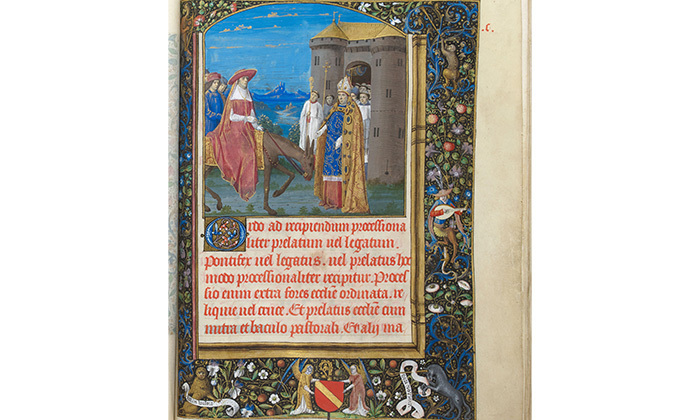 .c.
Ordo ad recipiendum processiona
liter prelatum uel legatum.
Pontifex uel legatus. uel prelatus hoc
modo processionaliter recipitur. Proces
sio enim extra fores ecclesie ordinata. re
liquie uel cruce. Et prelatus ecclesie cum
mitra et baculo pastorali. Et alij ma